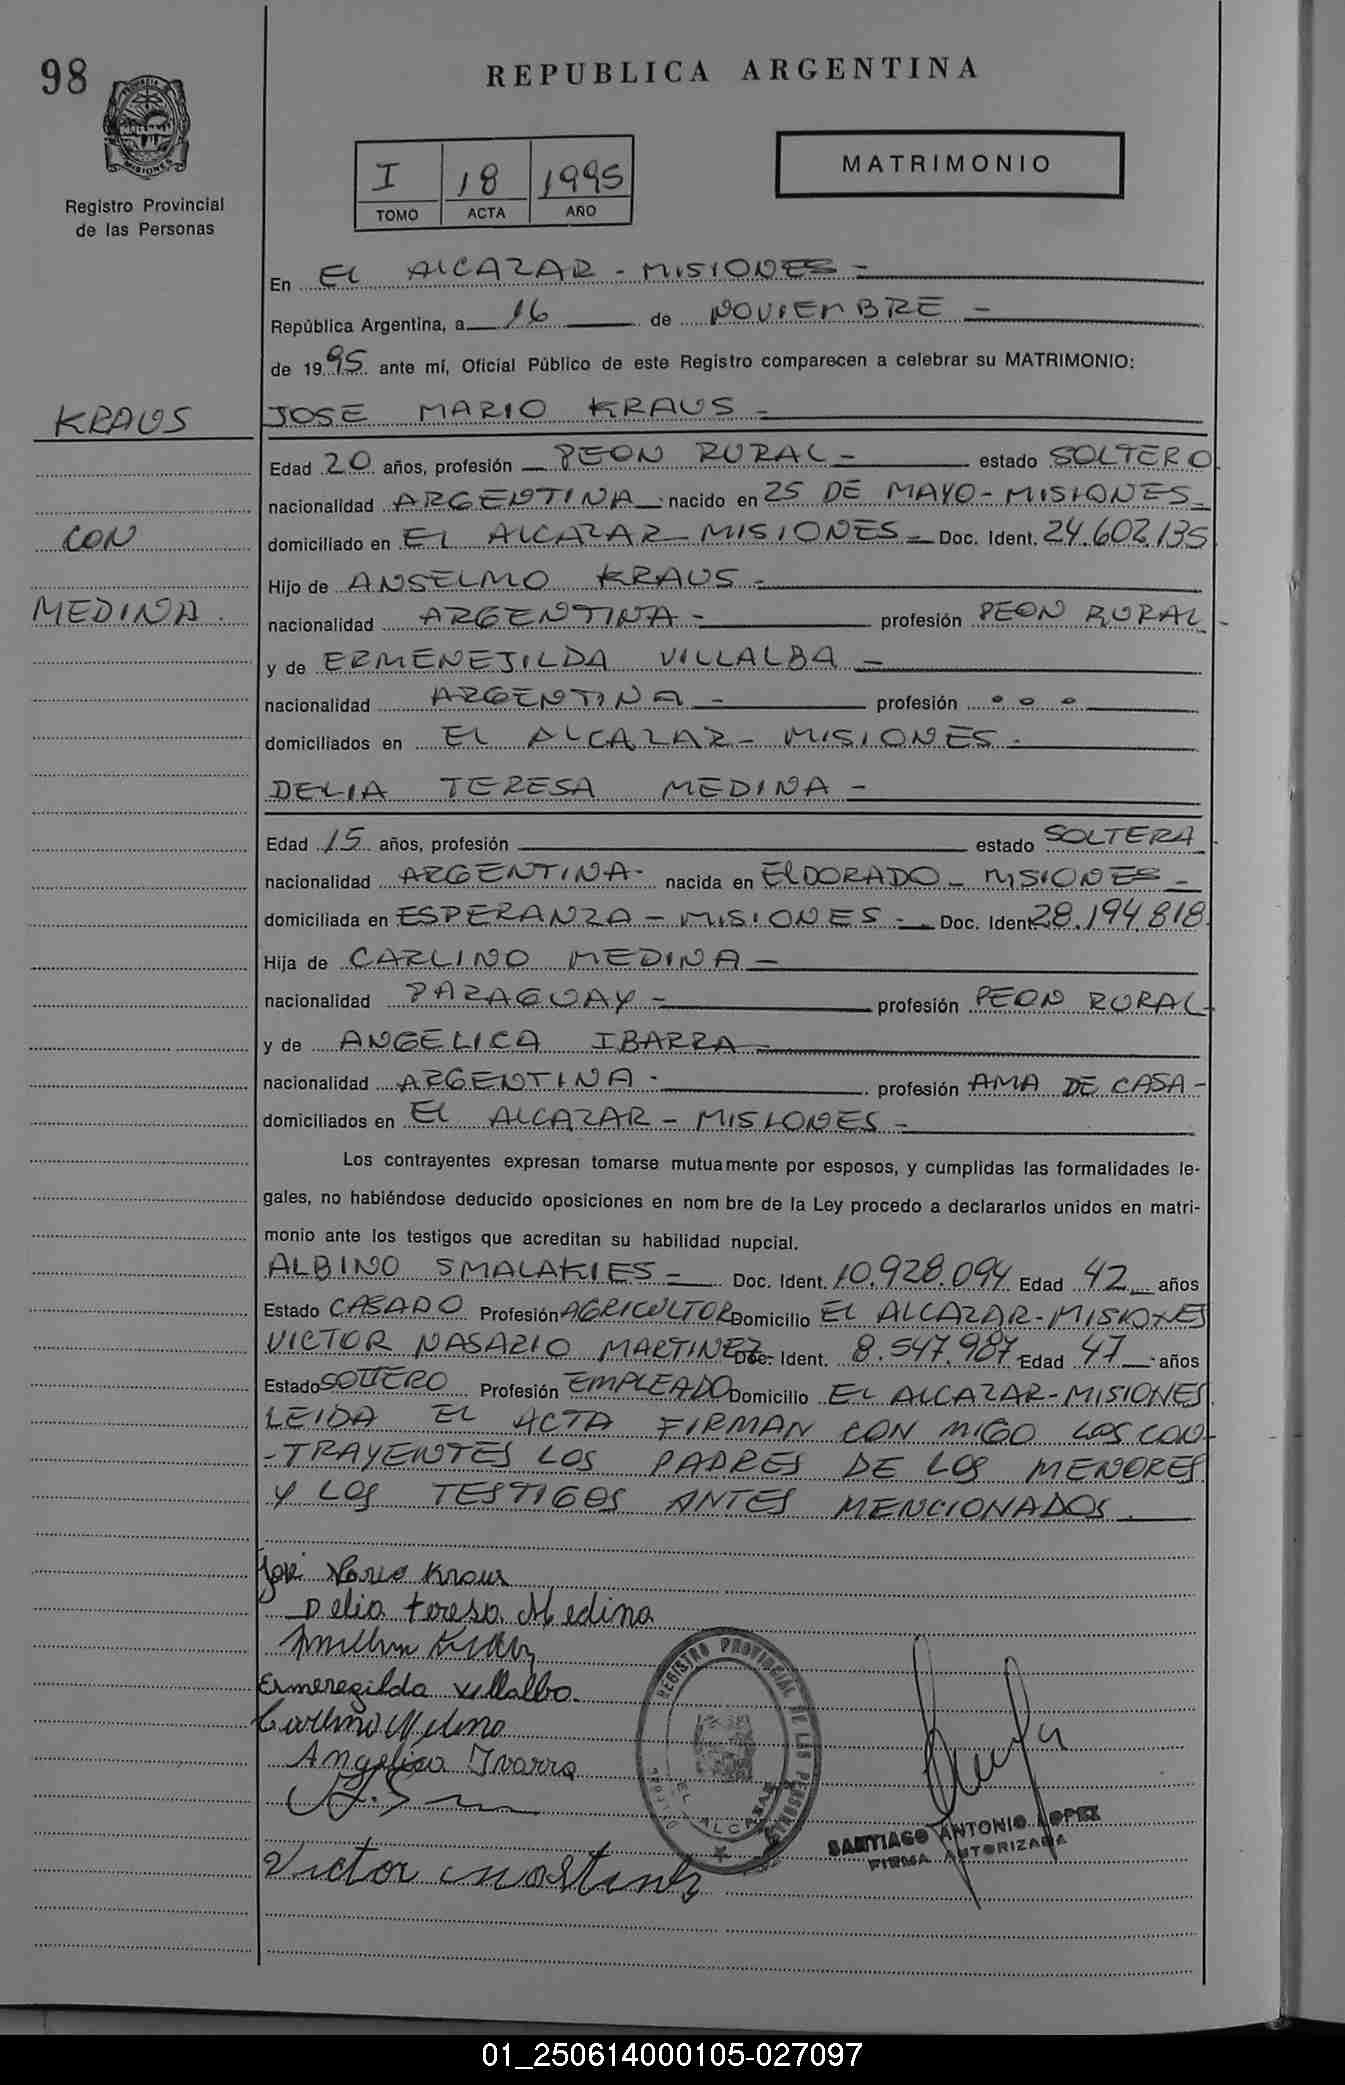 98
REPUBLICA ARGENTINA
I 18 1995
TOMO ACTA AÑO
MATRIMONIO
Registro Provincial
de las Personas
En EL ALCAZAR - MISIONES -
República Argentina, a 16 de NOVIEMBRE -
de 1995 ante mí, Oficial Público de este Registro comparecen a celebrar su MATRIMONIO:
KRAUS
CON
MEDINA.
JOSE MARIO KRAUS -
Edad 20 años, profesión PEON RURAL - estado SOLTERO
nacionalidad ARGENTINA nacido en 25 DE MAYO - MISIONES -
domiciliado en EL ALCAZAR - MISIONES - Doc. Ident. 24.602.135
Hijo de ANSELMO KRAUS -
nacionalidad ARGENTINA - profesión PEON RURAL -
y de ERMENEJILDA VILLALBA -
nacionalidad ARGENTINA - profesión
domiciliados en EL ALCAZAR - MISIONES -
DELIA TERESA MEDINA -
Edad 15 años, profesión estado SOLTERA
nacionalidad ARGENTINA - nacida en ELDORADO - MSIONES -
domiciliada en ESPERANZA - MISIONES - Doc. Ident 28.194.818
Hija de CARLINO MEDINA -
nacionalidad PARAGUAY - profesión PEON RURAL -
y de ANGELICA IBARRA -
nacionalidad ARGENTINA - profesión AMA DE CASA -
domiciliados en EL ALCAZAR - MISIONES -
Los contrayentes expresan tomarse mutuamente por esposos, y cumplidas las formalidades le-
gales, no habiéndose deducido oposiciones en nom bre de la Ley procedo a declararlos unidos en matri-
monio ante los testigos que acreditan su habilidad nupcial.
ALBINO SMALAKIES - Doc. Ident. 10.928.094 Edad 42 años
Estado CASADO Profesión AGRICULTOR Domicilio EL ALCAZAR - MISIONES
VICTOR NASARIO MARTINEZ Doc. Ident. 8.547.987 Edad 47 años
Estado SOLTERO Profesión EMPLEADO Domicilio EL ALCAZAR - MISIONES
LEIDA EL ACTA FIRMAN CON MIGO LOS CON-
-TRAYENTES LOS PADRES DE LOS MENORES
Y LOS TESTIGOS ANTES MENCIONADOS.
José Mario Kraus
Delia teresa Medina
Ermenegilda Villalba
Carlino Medina
Angelica Ivarra
Victor Martinez
REGISTRO PROVINCIAL DE LAS PERSONAS
EL ALCAZAR
SANTIAGO ANTONIO LOPEZ
FIRMA AUTORIZADA
01_250614000105-027097